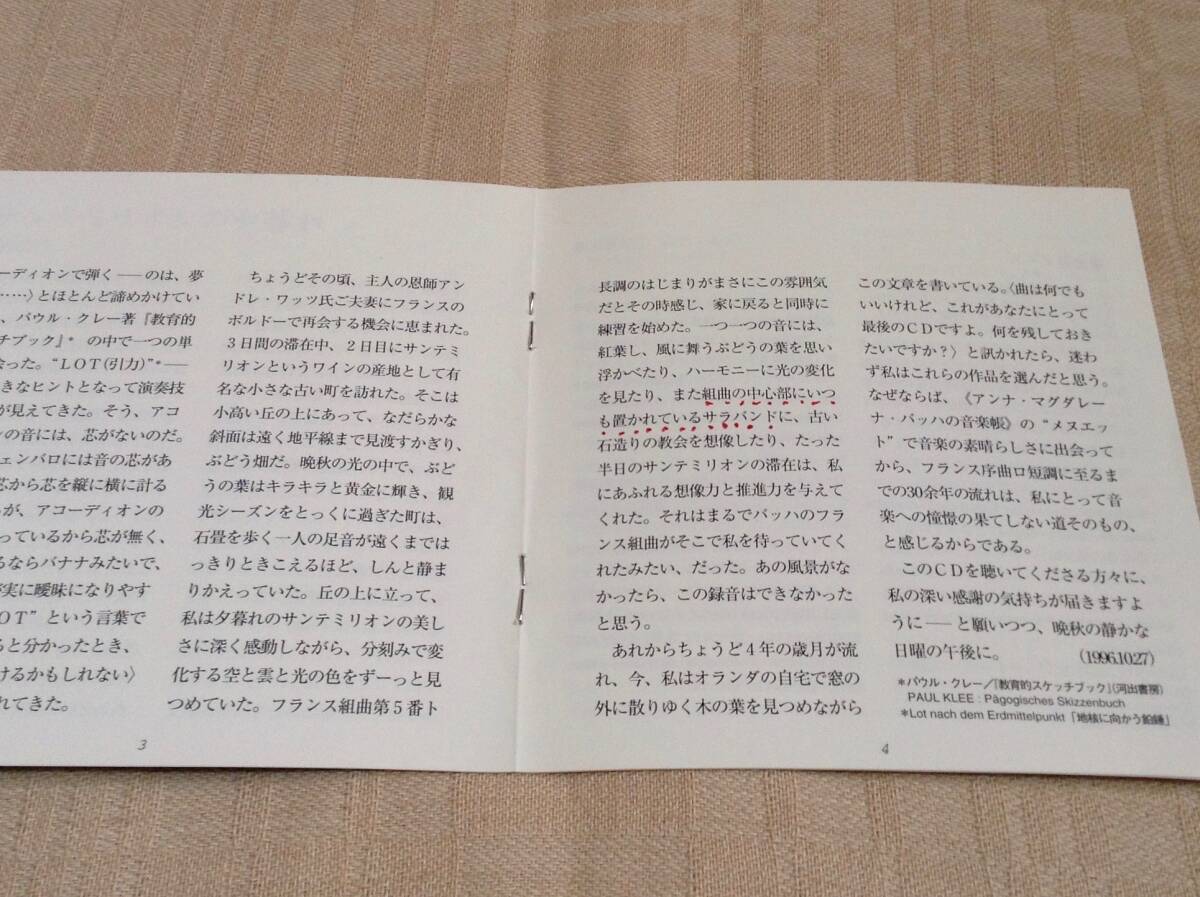 ーディオンで弾く ── のは、夢
……〉とほとんど諦めかけてい
、パウル・クレー著『教育的
チブック』* の中で一つの単
会った。“LOT(引力)”*──
きなヒントとなって演奏技
が見えてきた。そう、アコ
ンの音には、芯がないのだ。
ェンバロには音の芯があ
芯から芯を縦に横に計る
が、アコーディオンの
っているから芯が無く、
るならバナナみたいで、
が実に曖昧になりやす
OT”という言葉で
ると分かったとき、
けるかもしれない〉
れてきた。
3
ちょうどその頃、主人の恩師アン
ドレ・ワッツ氏ご夫妻にフランスの
ボルドーで再会する機会に恵まれた。
3日間の滞在中、2日目にサンテミ
リオンというワインの産地として有
名な小さな古い町を訪れた。そこは
小高い丘の上にあって、なだらかな
斜面は遠く地平線まで見渡すかぎり、
ぶどう畑だ。晩秋の光の中で、ぶど
うの葉はキラキラと黄金に輝き、観
光シーズンをとっくに過ぎた町は、
石畳を歩く一人の足音が遠くまでは
っきりときこえるほど、しんと静ま
りかえっていた。丘の上に立って、
私は夕暮れのサンテミリオンの美し
さに深く感動しながら、分刻みで変
化する空と雲と光の色をずーっと見
つめていた。フランス組曲第5番ト
長調のはじまりがまさにこの雰囲気
だとその時感じ、家に戻ると同時に
練習を始めた。一つ一つの音には、
紅葉し、風に舞うぶどうの葉を思い
浮かべたり、ハーモニーに光の変化
を見たり、また組曲の中心部にいつ
も置かれているサラバンドに、古い
石造りの教会を想像したり、たった
半日のサンテミリオンの滞在は、私
にあふれる想像力と推進力を与えて
くれた。それはまるでバッハのフラ
ンス組曲がそこで私を待っていてく
れたみたい、だった。あの風景がな
かったら、この録音はできなかった
と思う。
あれからちょうど4年の歳月が流
れ、今、私はオランダの自宅で窓の
外に散りゆく木の葉を見つめながら
この文章を書いている。〈曲は何でも
いいけれど、これがあなたにとって
最後のCDですよ。何を残しておき
たいですか?〉と訊かれたら、迷わ
ず私はこれらの作品を選んだと思う。
なぜならば、《アンナ・マグダレー
ナ・バッハの音楽帳》の“メヌエッ
ト”で音楽の素晴らしさに出会って
から、フランス序曲ロ短調に至るま
での30余年の流れは、私にとって音
楽への憧憬の果てしない道そのもの、
と感じるからである。
このCDを聴いてくださる方々に、
私の深い感謝の気持ちが届きますよ
うに ── と願いつつ、晩秋の静かな
日曜の午後に。 (1996.10.27)
*パウル・クレー/『教育的スケッチブック』(河出書房)
PAUL KLEE : Pägogisches Skizzenbuch
*Lot nach dem Erdmittelpunkt「地核に向かう鉛錘」
4